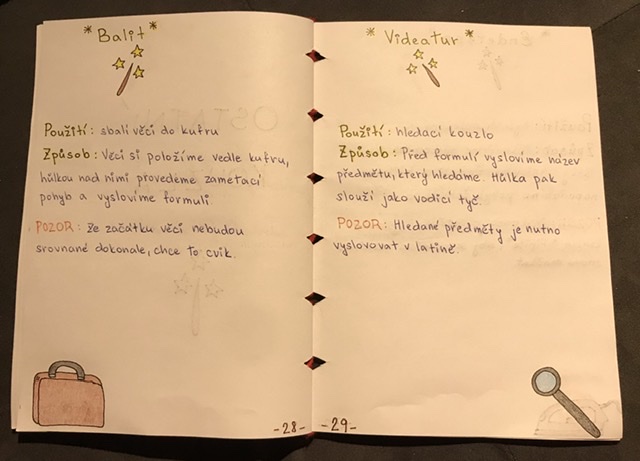 *Balit*
Použití: sbalí věci do kufru
Způsob: Věci si položíme vedle kufru,
hůlkou nad nimi provedeme zametací
pohyb a vyslovíme formuli.
POZOR: Ze začátku věci nebudou
srovnané dokonale, chce to cvik.
-28-
*Videatur*
Použití: hledací kouzlo
Způsob: Před formulí vyslovíme název
předmětu, který hledáme. Hůlka pak
slouží jako vodicí tyč.
POZOR: Hledané předměty je nutno
vyslovovat v latině.
-29-